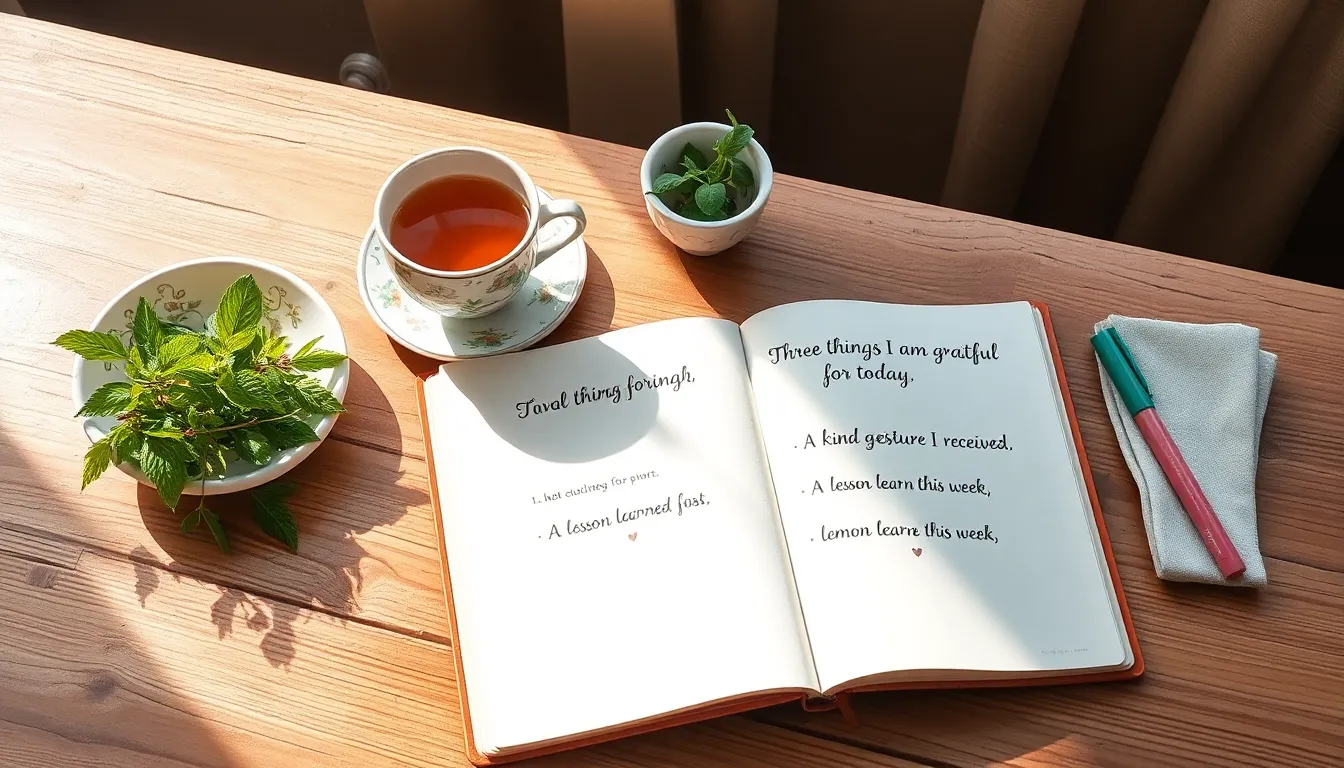 Taval thing foringh,
1. hat cludneg for pnart.
. A lesson learned fost,
Three things I am gratful
for today,
. A kind gesture I received,
. A lesson learn this week,
. lemon learn this week,